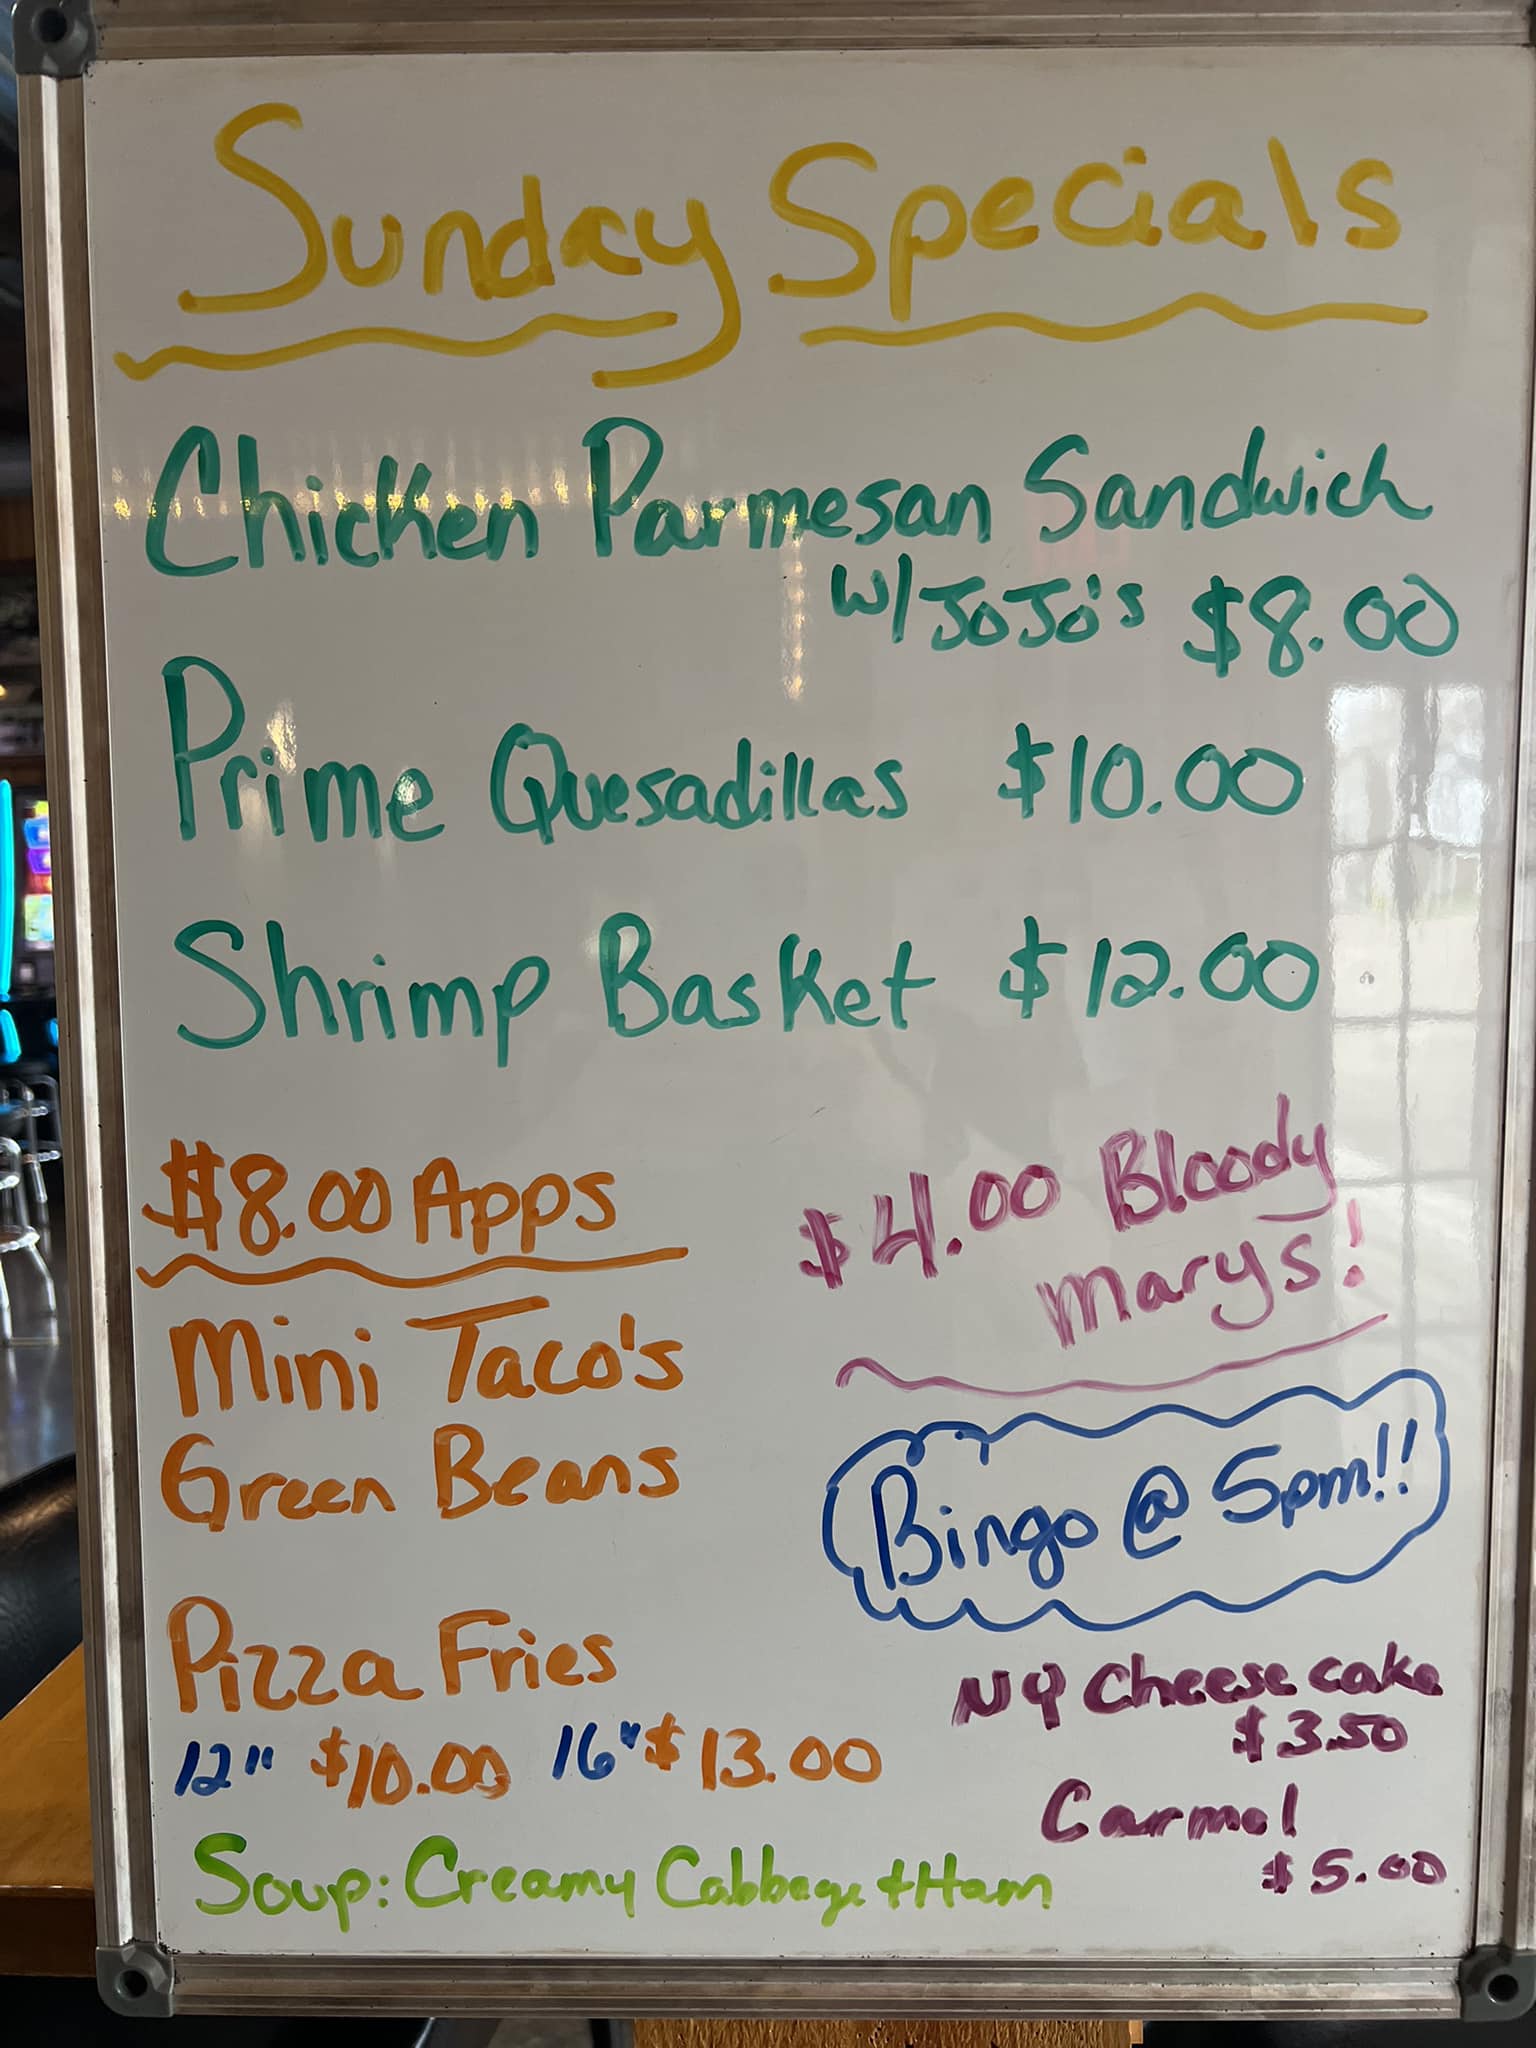 Sunday Specials
Chicken Parmesan Sandwich
W/ JoJo's $8.00
Prime Quesadillas $10.00
Shrimp Basket $12.00
$8.00 Apps
Mini Taco's
Green Beans
$4.00 Bloody
Marys!
Bingo @ 5pm!!
Pizza Fries
12" $10.00 16" $13.00
NY Cheesecake
$3.50
Carmel
$5.00
Soup: Creamy Cabbage + Ham